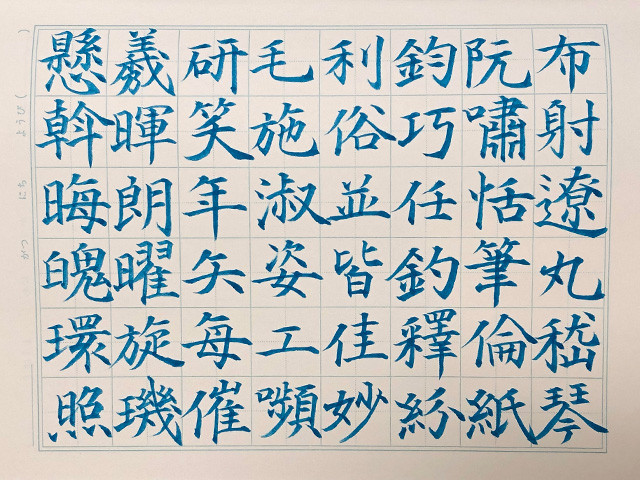 布射遼丸嵇琴
阮嘯恬筆倫紙
鈞巧任釣釋紛
利俗並皆佳妙
毛施淑姿工嚬
研笑年矢毎催
羲暉朗曜旋璣
懸斡晦魄環照
つき にち ようび ( )